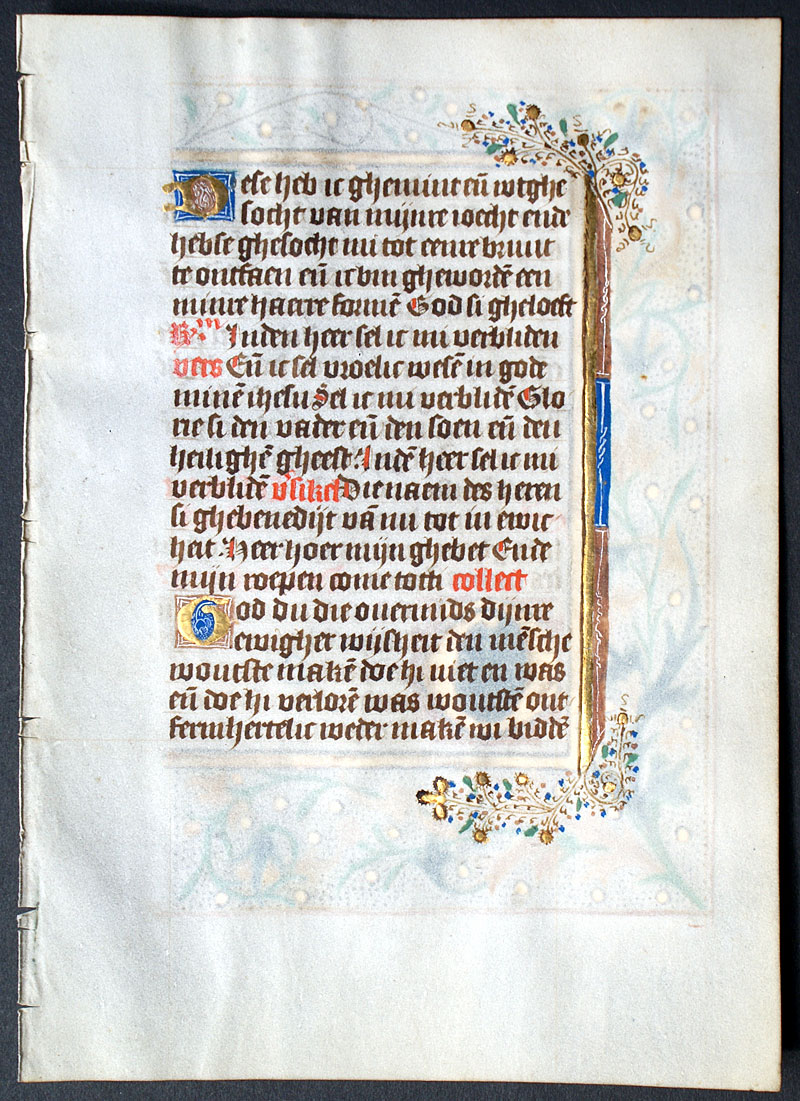 Dese heb ic ghemint eñ wtghe
socht van mijnre ioecht ende
hebse ghesocht mi tot eenre bruut
te ontfaen eñ ic bin ghewordē een
minre haerre formē God si gheloeft
Rm Inden heer sel ic mi verbliden
vers Eñ ic sel vroelic wesē in gode
minē ihesu Sel ic mi verblidē Glo
rie si den vader eñ den soen eñ den
heilighē gheest. Indē heer sel ic mi
verblidē v'sikel Die naem des heren
si ghebenedijt vā nu tot in ewic
heit. Heer hoer mijn ghebet Ende
mijn roepen come totti collect
God du die ouermids dijnre
ewigher wijsheit den mēsche
woutste makē doe hi niet en was
eñ doe hi verlorē was woutstē ont
fermhertelic weder makē wi biddē